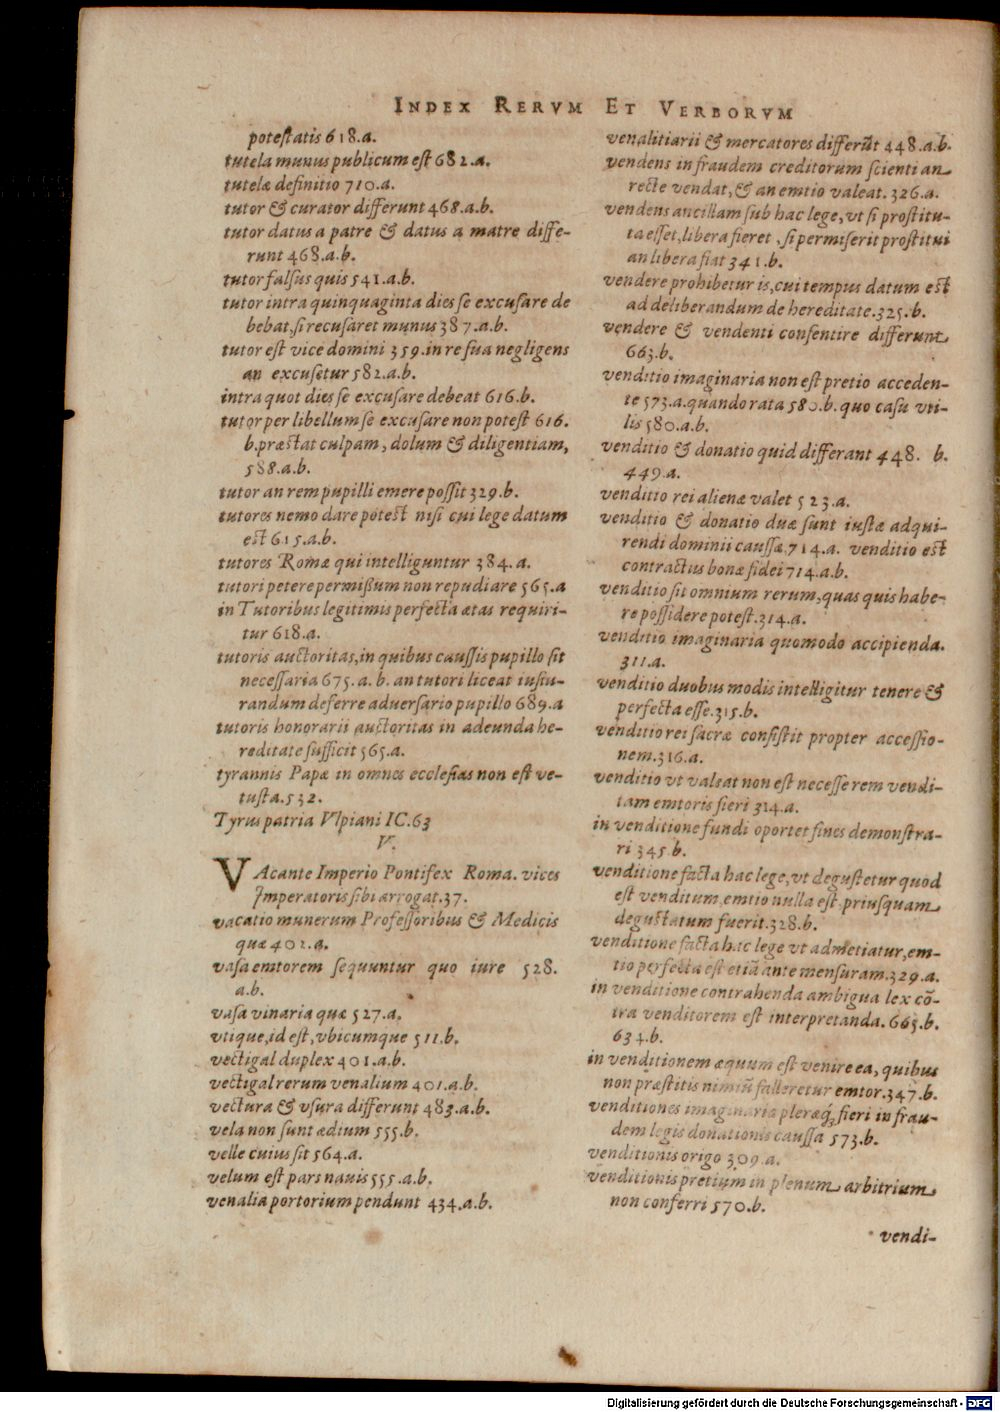 INDEX RERVM ET VERBORVM
potestatis 618.a.
tutela munus publicum est 682.a.
tutelæ definitio 710.a.
tutor & curator differunt 468.a.b.
tutor datus a patre & datus a matre diffe-
runt 468.a.b.
tutor falsus quis 541.a.b.
tutor intra quinquaginta dies se excusare de
bebat, si recusaret munus 387.a.b.
tutor est vice domini 359. in re sua negligens
an excusetur 582.a.b.
intra quot dies se excusare debeat 616.b.
tutor per libellum se excusare non potest 616.
b. præstat culpam, dolum & diligentiam,
588.a.b.
tutor an rem pupilli emere possit 329.b.
tutores nemo dare potest nisi cui lege datum
est 615.a.b.
tutores Romæ qui intelliguntur 384.a.
tutori petere permißum non repudiare 565.a
in Tutoribus legitimis perfecta ætas requiri-
tur 618.a.
tutoris auctoritas, in quibus caussis pupillo sit
necessaria 675.a.b. an tutori liceat iusiu-
randum deferre adversario pupillo 689.a
tutoris honorarii auctoritas in adeunda he-
reditate sufficit 565.a.
tyrannis Papæ in omnes ecclesias non est ve-
tusta. 532.
Tyrus patria Vlpiani IC. 63
V.
VAcante Imperio Pontifex Roma. vices
Imperatoris sibi arrogat. 37.
vacatio munerum Professoribus & Medicis
quæ 402.a.
vasa emtorem sequuntur quo iure 528.
a.b.
vasa vinaria quæ 527.a.
vtique, id est, vbicumque 511.b.
vectigal duplex 401.a.b.
vectigal rerum venalium 401.a.b.
vectura & vsura differunt 483.a.b.
vela non sunt ædium 555.b.
velle cuius sit 564.a.
velum est pars navis 555.a.b.
venalia portorium pendunt 434.a.b.
venalitiarii & mercatores differūt 448.a.b.
vendens in fraudem creditorum scienti an
recte vendat, & an emtio valeat. 326.a.
vendens ancillam sub hac lege, vt si prostitu-
ta esset, libera fieret, si permiserit prostitui
an libera fiat 341.b.
vendere prohibetur is, cui tempus datum est
ad deliberandum de hereditate. 325.b.
vendere & vendenti consentire differunt
663.b.
venditio imaginaria non est pretio acceden-
te 573.a. quando rata 580.b. quo casu vti-
lis 580.a.b.
venditio & donatio quid differant 448. b.
449.a.
venditio rei alienæ valet 523.a.
venditio & donatio duæ sunt iustæ adqui-
rendi dominii caussæ. 714.a. venditio est
contractus bonæ fidei 714.a.b.
venditio sit omnium rerum, quas quis habe-
re possidere potest. 314.a.
venditio imaginaria quomodo accipienda.
311.a.
venditio duobus modis intelligitur tenere &
perfecta esse. 315.b.
venditio rei sacræ consistit propter accessio-
nem. 316.a.
venditio vt valeat non est necesse rem vendi-
tam emtoris fieri 314.a.
in venditione fundi oportet fines demonstra-
ri 345.b.
venditione facta hac lege, vt degustetur quod
est venditum, emtio nulla est priusquam
degustatum fuerit. 328.b.
venditione facta hac lege vt admetiatur, em-
tio perfecta est etiā ante mensuram. 329.a.
in venditione contrahenda ambigua lex cō-
tra venditorem est interpretanda. 665.b.
634.b.
in venditionem æquum est venire ea, quibus
non præstitis nimiū falleretur emtor. 347.b.
venditiones imaginaria pleræq; fieri in frau-
dem legis donationis caussa 573.b.
venditionis origo 309.a.
venditionis pretium in plenum arbitrium
non conferri 570.b.
vendi-
Digitalisierung gefördert durch die Deutsche Forschungsgemeinschaft - DFG